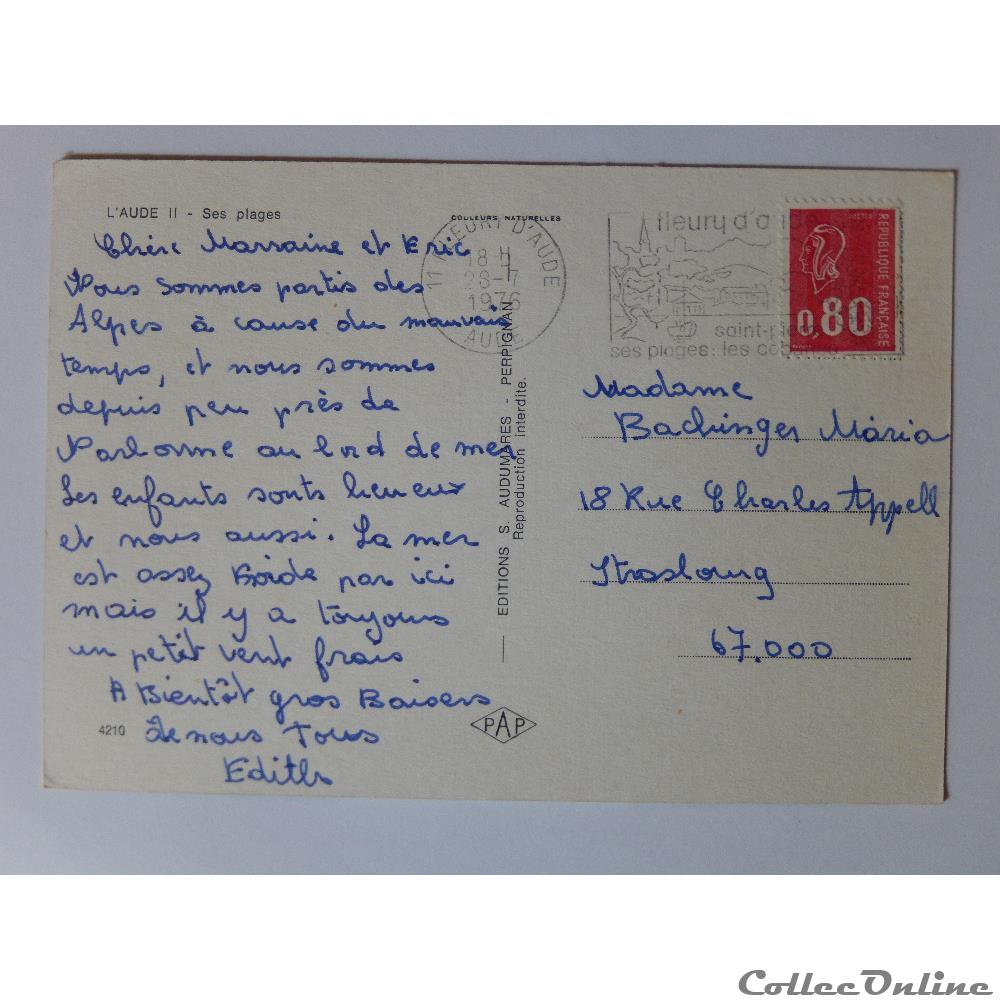 L'AUDE II - Ses plages
COULEURS NATURELLES
Chère Marraine et Eric
Nous sommes partis des
Alpes à cause du mauvais
temps, et nous sommes
depuis peu près de
Narbonne au bord de mer
Les enfants sonts heureux
et nous aussi. La mer
est assez froide par ici
mais il y a toujours
un petit vent frais
A Bientôt gros Baisers
De nous Tous
Edith
4210
11 FLEURY D'AUDE
18 H
28-7
1976
AUDE
fleury d'a
saint-pier
ses plages: les cab
REPUBLIQUE FRANÇAISE
0,80
EDITIONS S. AUDUMARES - PERPIGNAN
Reproduction interdite.
PAP
Madame
Bachinger Maria
18 Rue Charles Appell
Strasbourg
67.000
CollecOnline